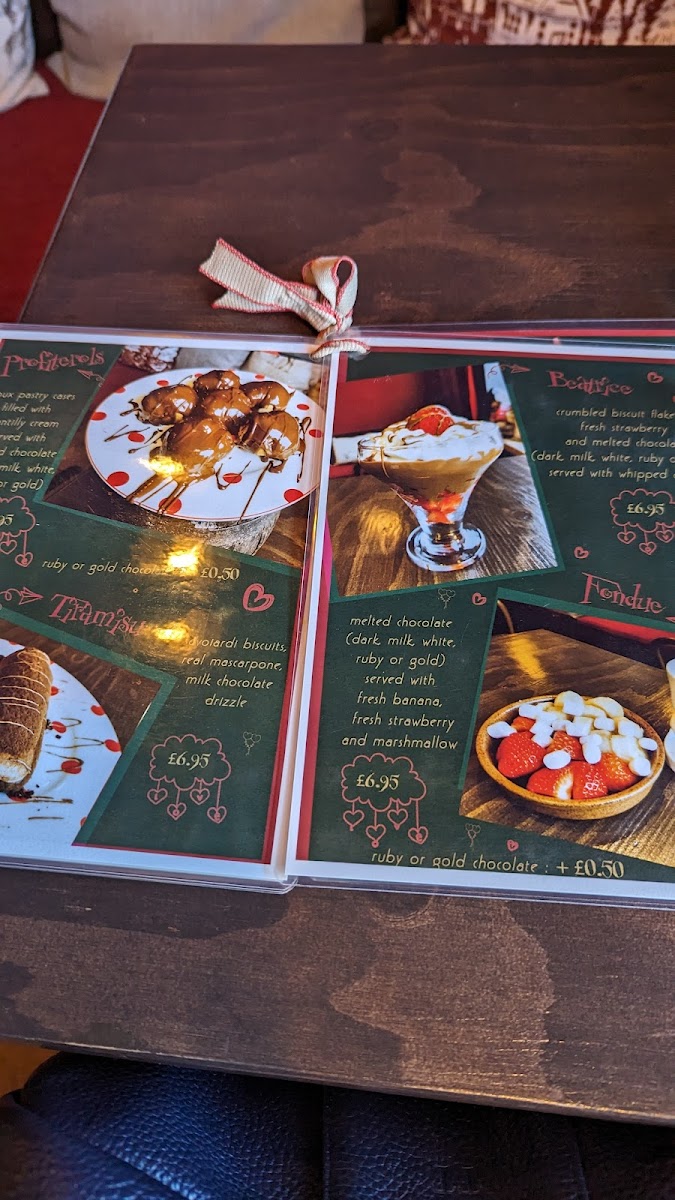 Profiterols
pastry cases
filled with
cream
with
chocolate
milk, white,
or gold)
ruby or gold £0.50
Tiramisu
biscuits,
real mascarpone,
milk chocolate
drizzle
£6.95
Beatrice
crumbled biscuit
fresh strawberry
and melted
(dark, milk, white, ruby
served with whipped
£6.95
Fondue
melted chocolate
(dark, milk, white,
ruby or gold)
served with
fresh banana,
fresh strawberry
and marshmallow
£6.95
ruby or gold chocolate : + £0.50